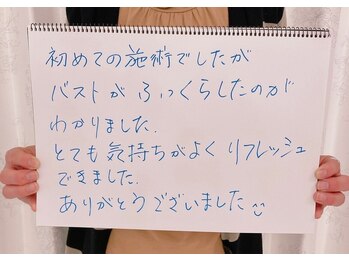 初めての施術でしたが
バストがふっくらしたのが
わかりました.
とても気持ちがよくリフレッシュ
できました.
ありがとうございました